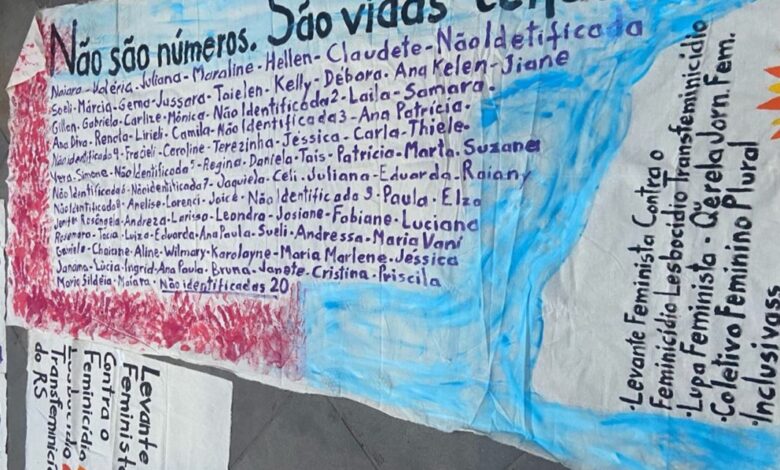 Não são números. São vidas
Naiara - Valéria - Juliana - Maraline - Hellen - Claudete - Não Idetificada
Soeli - Márcia - Gema - Jussara - Taielen - Kelly - Débora - Ana Kelen - Jiane
Gillen - Gabriela - Carlize - Mônica - Não Identificada 2 - Laila - Samara.
Ana Diva - Renata - Lirieli - Camila - Não Identificada 3 - Ana Patrícia.
Não identificada 4 - Fracieli - Caroline - Terezinha - Jessica - Carla - Thiele.
Vera. Simone - Não Identificada 5 - Regina - Daniela - Tais - Patricia - Marta - Suzana
Não Identificada 6 - Não identificada 7 - Jaquiela - Celi - Juliana - Eduarda - Raiany
Não Identificada 8 - Anelise - Lorenci - Joice - Não Identificada 9 - Paula - Elza
Rosângela - Andreza - Larissa - Leandra - Josiane - Fabiane - Luciana
Rosemara - Tácia - Luiza - Eduarda - Ana Paula - Sueli - Andressa - Maria Vani
Gabriele - Chaiane - Aline - Wilmary - Karolayne - Maria Marlene - Jéssica
Janana - Lúcia - Ingrid - Ana Paula - Bruna - Janete - Cristina - Priscila
Maria Sildéia - Maiara - Não identificadas 20
• Levante Feminista Contra o
Feminicídio Lesbocídio Transfeminicídio
• Lupa Feminista • Qerela Jorn. Fem.
• Coletivo Feminino Plural
• Inclusivass
Levante
Feminista
Contra o
Feminicídio
Lesbocídio
Transfeminicídio
do RS